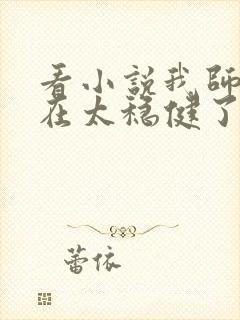 看小說我師
在太稳健了
蕾依